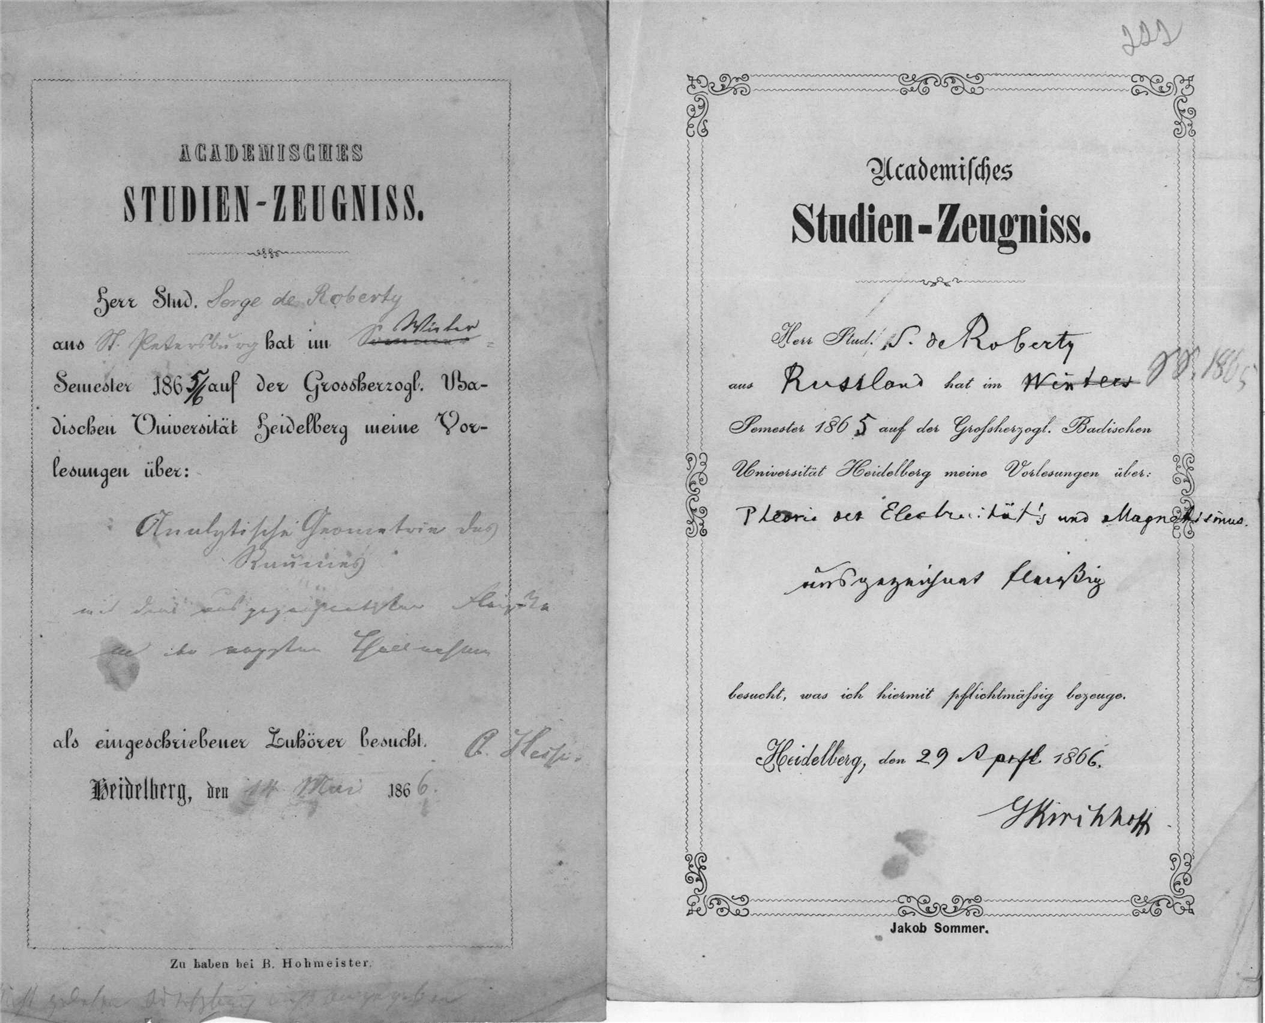 ACADEMISCHES
STUDIEN-ZEUGNISS.
Herr Stud. Serge de Roberty
aus St. Petersburg hat im Sommer Winter-
Semester 1865/6 auf der Grossherzogl. Ba-
dischen Universität Heidelberg meine Vor-
lesungen über:
Analytische Geometrie des
Raumes
mit dem ausgezeichnetsten
als eingeschriebener Zuhörer besucht.
Heidelberg, den 14 Mai 1866.
Zu haben bei B. Hohmeister.
222
Academisches
Studien-Zeugniss.
Herr Stud. S. de Roberty
aus Russland hat im Winter SS. 1865
Semester 1865 auf der Grofsherzogl. Badischen
Universität Heidelberg meine Vorlesungen über:
Theorie der Electricität's und Magnetismus.
ausgezeichnet fleißig
besucht, was ich hiermit pflichtmäfsig bezeuge.
Heidelberg, den 29 April 1866.
GKirchhoff
Jakob Sommer.